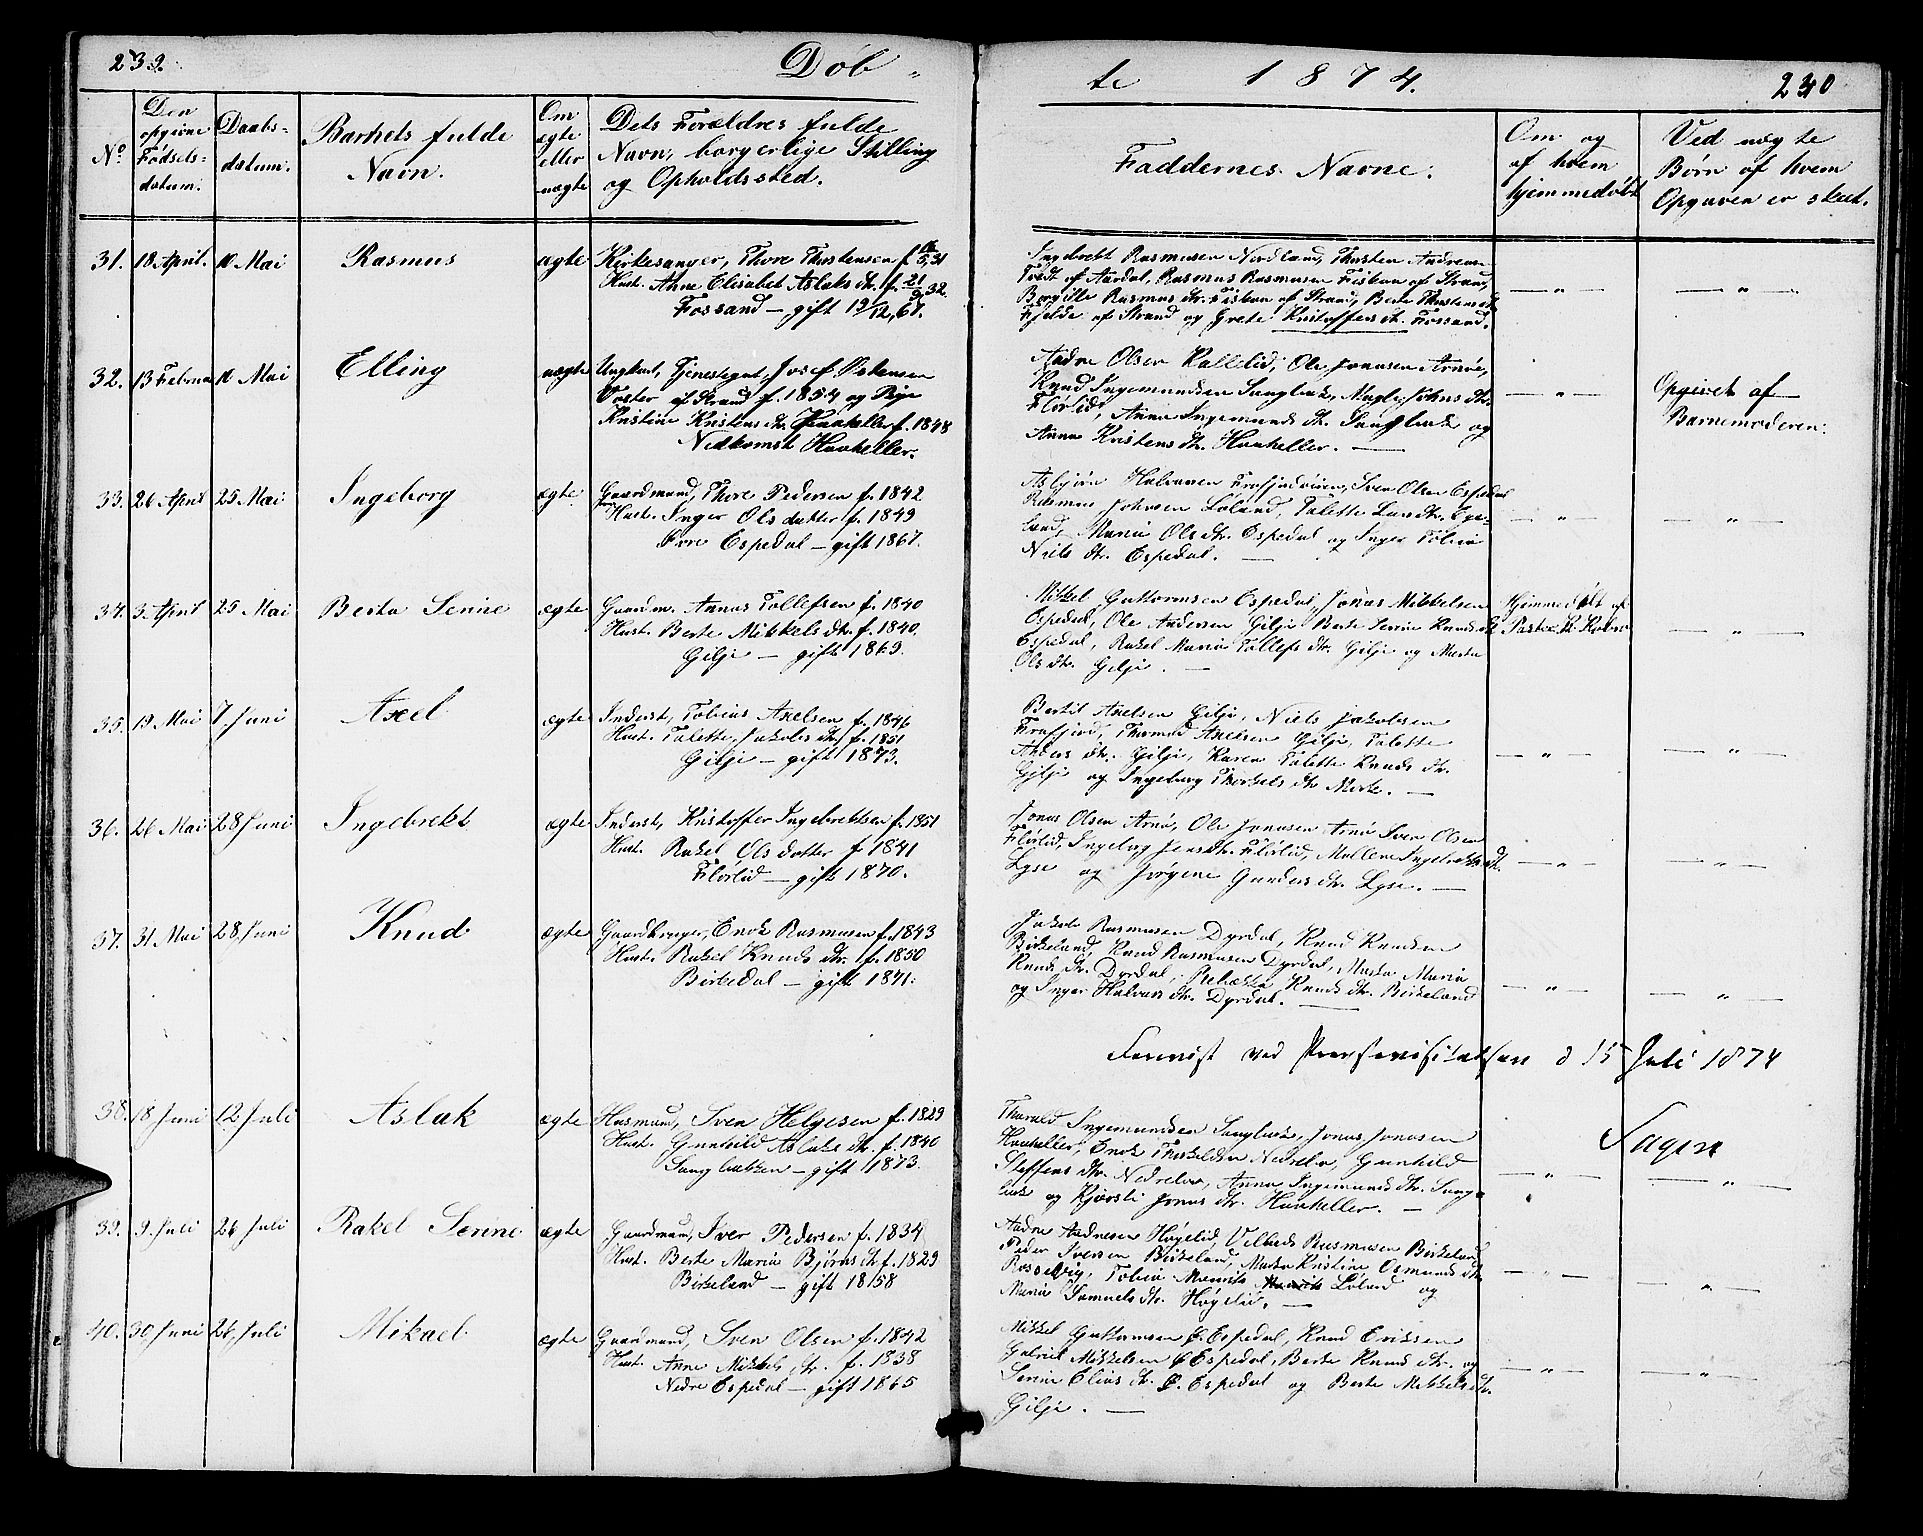 239.
Døb-
te 1874.
240
No
Den opgivne Fødselsdatum.
Daabsdatum.
Barnets fulde Navn.
Om ægte eller uægte
Dets Forældres fulde Navn, borgerlige Stilling og Opholdssted.
Faddernes Navne.
Om og af hvem hjemmedøbt
Ved uægte Børn af hvem Opgaven er skeet.
31. 18 April. 10 Mai Rasmus ægte Kirkesanger, Thore Thostensen f.
Hust. Anne Elisabet Aslaks dtr. f. 21/9 32.
Fossand — gift 19/12, 67.
Ingebrekt Rasmusen Nordland, Thosten Andreas
Tvedt af Aardal, Rasmus Rasmusen Fiskaa af Strand,
Borgille Rasmus dtr. Fiskaa af Strand, Berte Thostens dtr.
Fjelde af Strand og Grete Kristoffers dtr. Fossand.
— „ —
— „ —
32. 13 Februar 10 Mai Elling uægte Ungkarl, Tjenestegut, Josef Østensen
Voster af Strand f. 1854 og Pige
Kristine Kristens dtr. Haaheller f. 1848
Nedkomst Haaheller.
Aadne Olsen Kallelid, Ole Jonasen Arnøe,
Knud Ingemundsen Songlesk, Magle Johns dtr.
Flørlid, Anna Ingemunds dtr. og
Anna Kristens dtr. Haaheller. —
— „ —
Opgivet af
Barnemoderen.
33. 26 April 25 Mai Ingeborg ægte Gaardmand, Thore Pedersen f. 1842
Hust. Inger Ols datter f. 1849
Øvre Espedal — gift 1867.
Asbjørn Halvorsen Frafjord, Sven Olsen Espedal
Rasmus Johnsen Løland, Talette Lars dtr. Espe-
land, Maria Ols dtr. Espedal og Inger Tolina
Niels dtr. Espedal. —
— „ —
— „ —
34. 3 April 25 Mai Berta Serine ægte Gaardm. Annas Tollefsen f. 1840
Hust. Berte Mikkels dtr. f. 1840.
Gilje — gift 1869.
Mikkel Guttormsen Espedal, Jonas Mikkelsen
Espedal, Ole Andersen Gilje Berte Serine Knuds dtr.
Espedal, Rakel Maria Tollefs dtr. Gilje og Marta
Ols dtr. Gilje. —
Hjemmedøbt af
Pastor
— „ —
35. 19 Mai 7 Juni Axel ægte Inderst, Tobias Axelsen f. 1846
Hust. Talette Jakobs dtr. f. 1851
Gilje — gift 1873.
Bertil Axelsen Gilje, Niels Jakobsen
Frafjord, Thomas Axelsen Gilje, Talette
Anders dtr. Gilje, Karen Talette Knuds dtr.
Gilje og Ingeborg Thorkels dtr. Mæle. —
— „ —
— „ —
36. 26 Mai 28 Juni Ingebrekt ægte Inderst, Kristoffer Ingebrektsen f. 1851
Hust. Rakel Ols datter f. 1841
Flørlid — gift 1870.
Jonas Olsen Arnø, Ole Jonasen Arnø Sven Olsen
Flørlid, Ingeborg Jens dtr. Flørlid, Mallene Ingebrekts dtr.
Lyse og Jørgine Gunders dtr. Lyse. —
— „ —
— „ —
37. 31 Mai 28 Juni Knud ægte Gaardbruger, Enok Rasmusen f. 1843
Hust. Rakel Knuds dtr. f. 1850
Birkedal — gift 1871.
Jakob Rasmusen Dyrdal, Knud Knudsen
Birkeland, Knud Rasmusen Dyrdal, Marta Maria
Knuds dtr. Dyrdal, Rebekka Knuds dtr. Birkeland
og Inger Halvors dtr. Dyrdal. —
— „ —
— „ —
Forevist ved Provsevisitatsen d 15 Juli 1874
38. 18 Juni 12 Juli Aslak ægte Husmand, Sven Helgesen f. 1829
Hust. Gunhild Aslaks dtr. f. 1840
Songlesken — gift 1873.
Tharald Ingemundsen Songlesk, Jonas Jonasen
Haaheller, Enok Thorkeldsen Nedrebø, Gunhild
Steffens dtr. Nedrebø, Anna Ingemunds dtr. Songe
lesk og Kjersti Jonas dtr. Haaheller. —
— „ —
— „ —
39. 9 Juli 26 Juli Rakel Serine ægte Gaardmand, Iver Pedersen f. 1834
Hust. Berte Maria Bjørns dtr. f. 1829
Birkeland — gift 1858
Aadne Andresen Høgelid, Rasmusen Birkeland,
Peder Iversen Birkeland, Marta Kristine Osmunds dtr.
Rossavig, Tolina Løland og
Maria Samuels dtr. Høgelid. —
— „ —
— „ —
40. 30 Juni 26 Juli Mikael ægte Gaardmand, Sven Olsen f. 1842
Hust. Anne Mikkels dtr. f. 1838
Nedre Espedal — gift 1865
Mikkel Guttormsen Ø. Espedal, Knud Eriksen
Gabriel Mikkelsen Ø Espedal, Berte Knuds dtr. og
Serine Elias dtr. Ø. Espedal og Berte Mikkels dtr.
Gilje. —
— „ —
— „ —